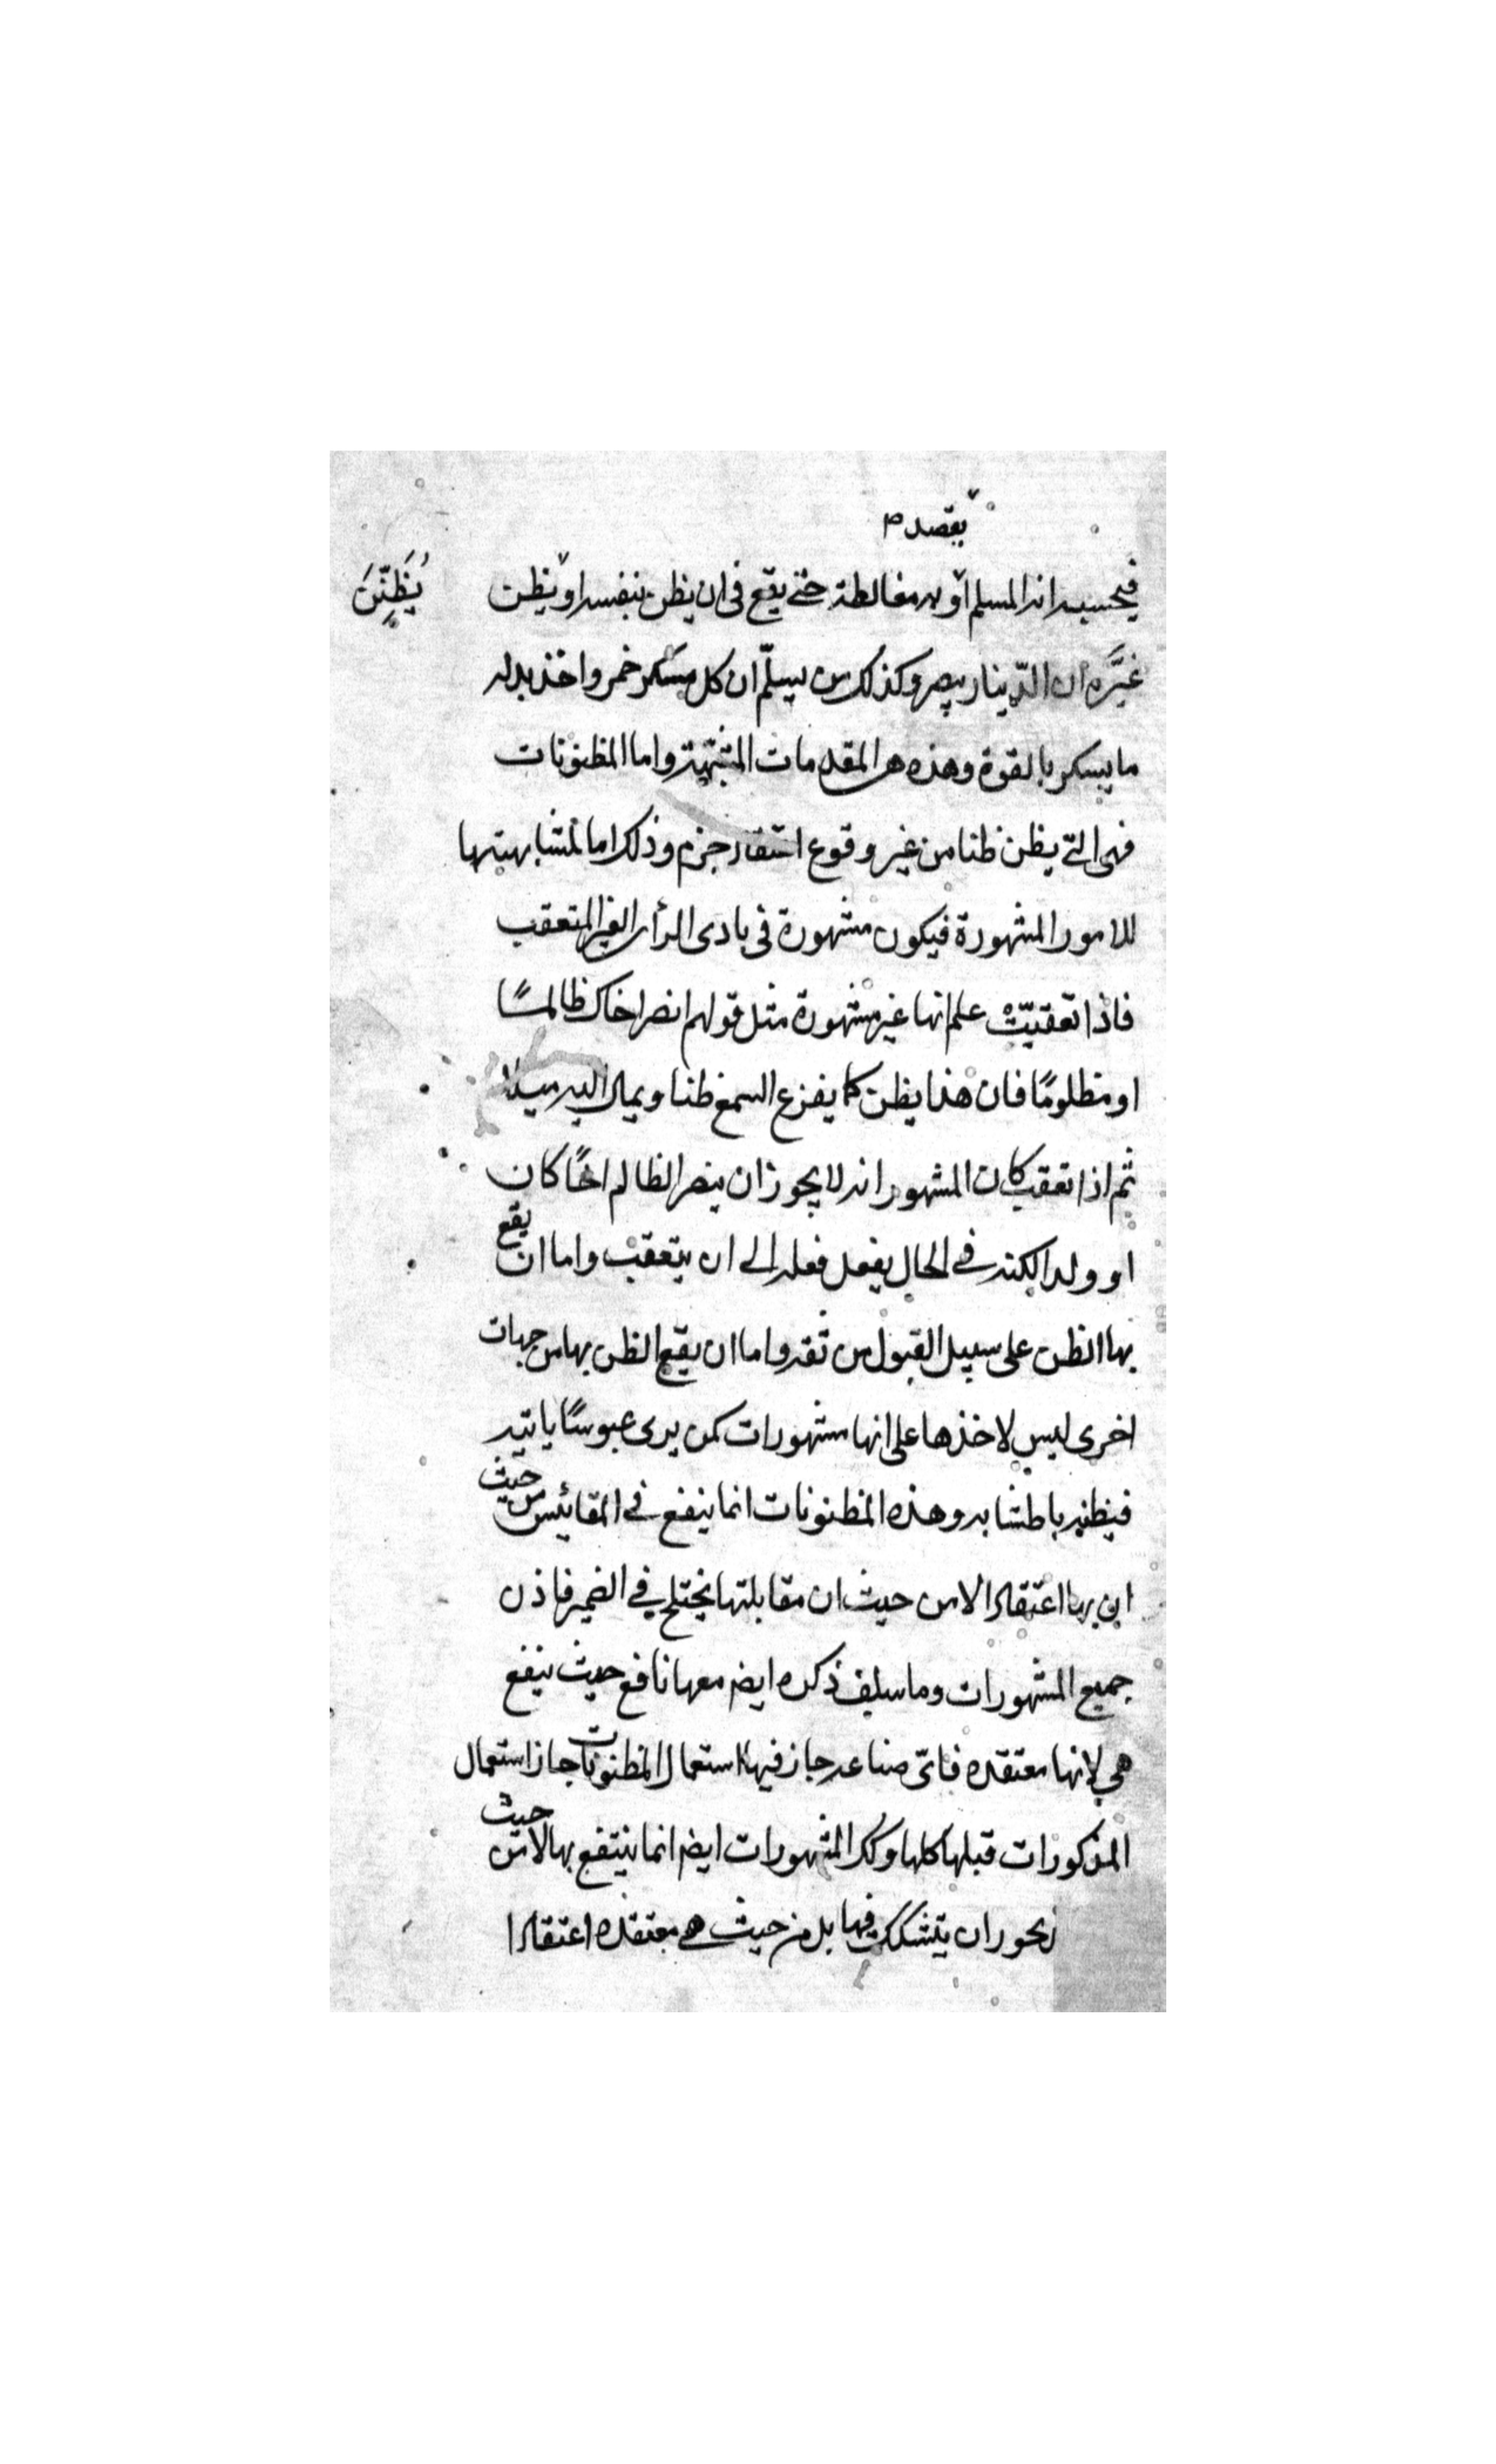 يقصد م
فيحسبه انه المسلم او لمغالطة حتى يقع فى ان يظن بنفسه او يظن
يُظَنِّنَ
غيَرَه ان الدّينار يبصر وكذلك من يسلّم ان كل مسكر خمر واخذ بدله
ما يسكر بالقوة وهذه هى المقدمات المشبّهة واما المظنونات
فهى التى يظن ظنا من غير وقوع اعتقاد جزم وذلك اما لمشابهتها
للامور المشهورة فيكون مشهورة فى بادى الرأى الغير المتعقب
فاذا تعقبّت علم انها غير مشهورة مثل قولهم انصر اخاك ظالمًا
او مظلومًا فان هذا يظن كما يفزع السمع ظنا ويمال اليه ميلا
ثم اذا تعقب كان المشهور انه لا يجوز ان ينصر الظالم اخًا كان
او ولدا لكنه فى الحال يفعل فعله الى ان يتعقب واما ان يقع
بها الظن على سبيل القبول من ثقة واما ان يقع الظن بها من جهات
اخرى ليس لاخذها على انها مشهورات كمن يرى عبوسًا ياتيه
فيظنه باطشا به وهذه المظنونات انما ينفع فى المقائيس من حيث
ان بها اعتقادا لا من حيث ان مقابلتها يختلج فى الضمير فاذن
جميع المشهورات وما سلف ذكره ايضا معها نافع حيث ينفع
هى لانها معتقده فاىّ صناعه جاز فيها استعمال المظنونات جاز استعمال
المذكورات قبلها كلها وكك المشهورات ايضا انما ينتفع بها لا من حيث
يجوز ان يتشكك فيها بل من حيث هى معتقده اعتقادا